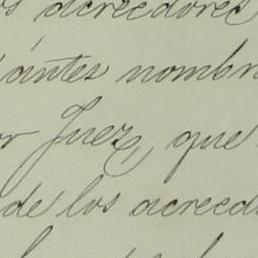 s acreedores
ántes nombr
or Juez, que
de los acreed